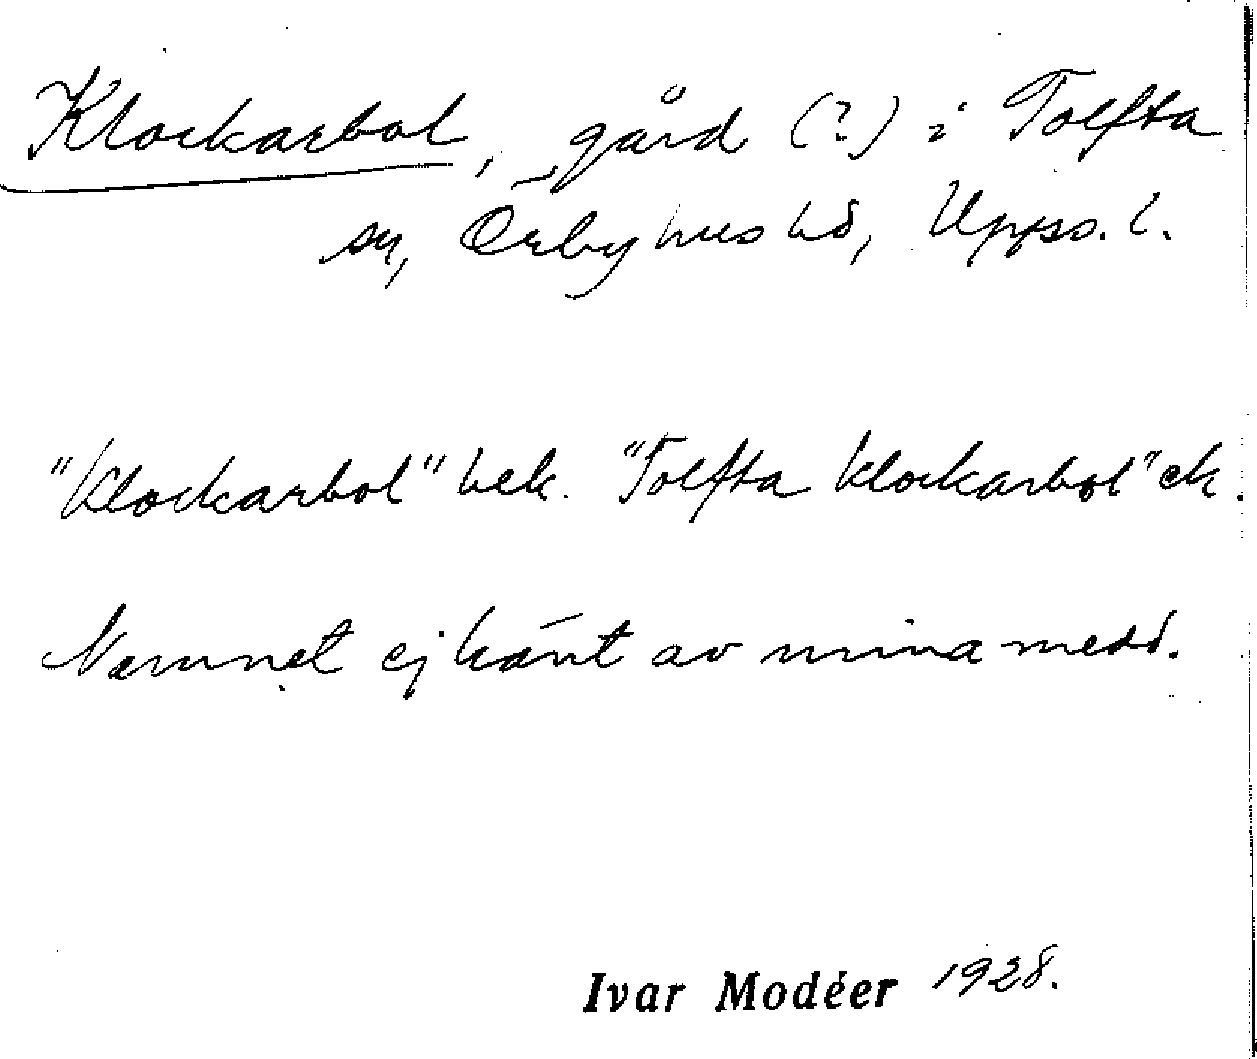 Klockarbol, gård (?) i Tolfta
sn, Örbyhus hd, Upps. l.
"Klockarbol" hek. "Tolfta klockarbol" ek.
Namnet ej känt av mina medd.
Ivar Modéer 1928.